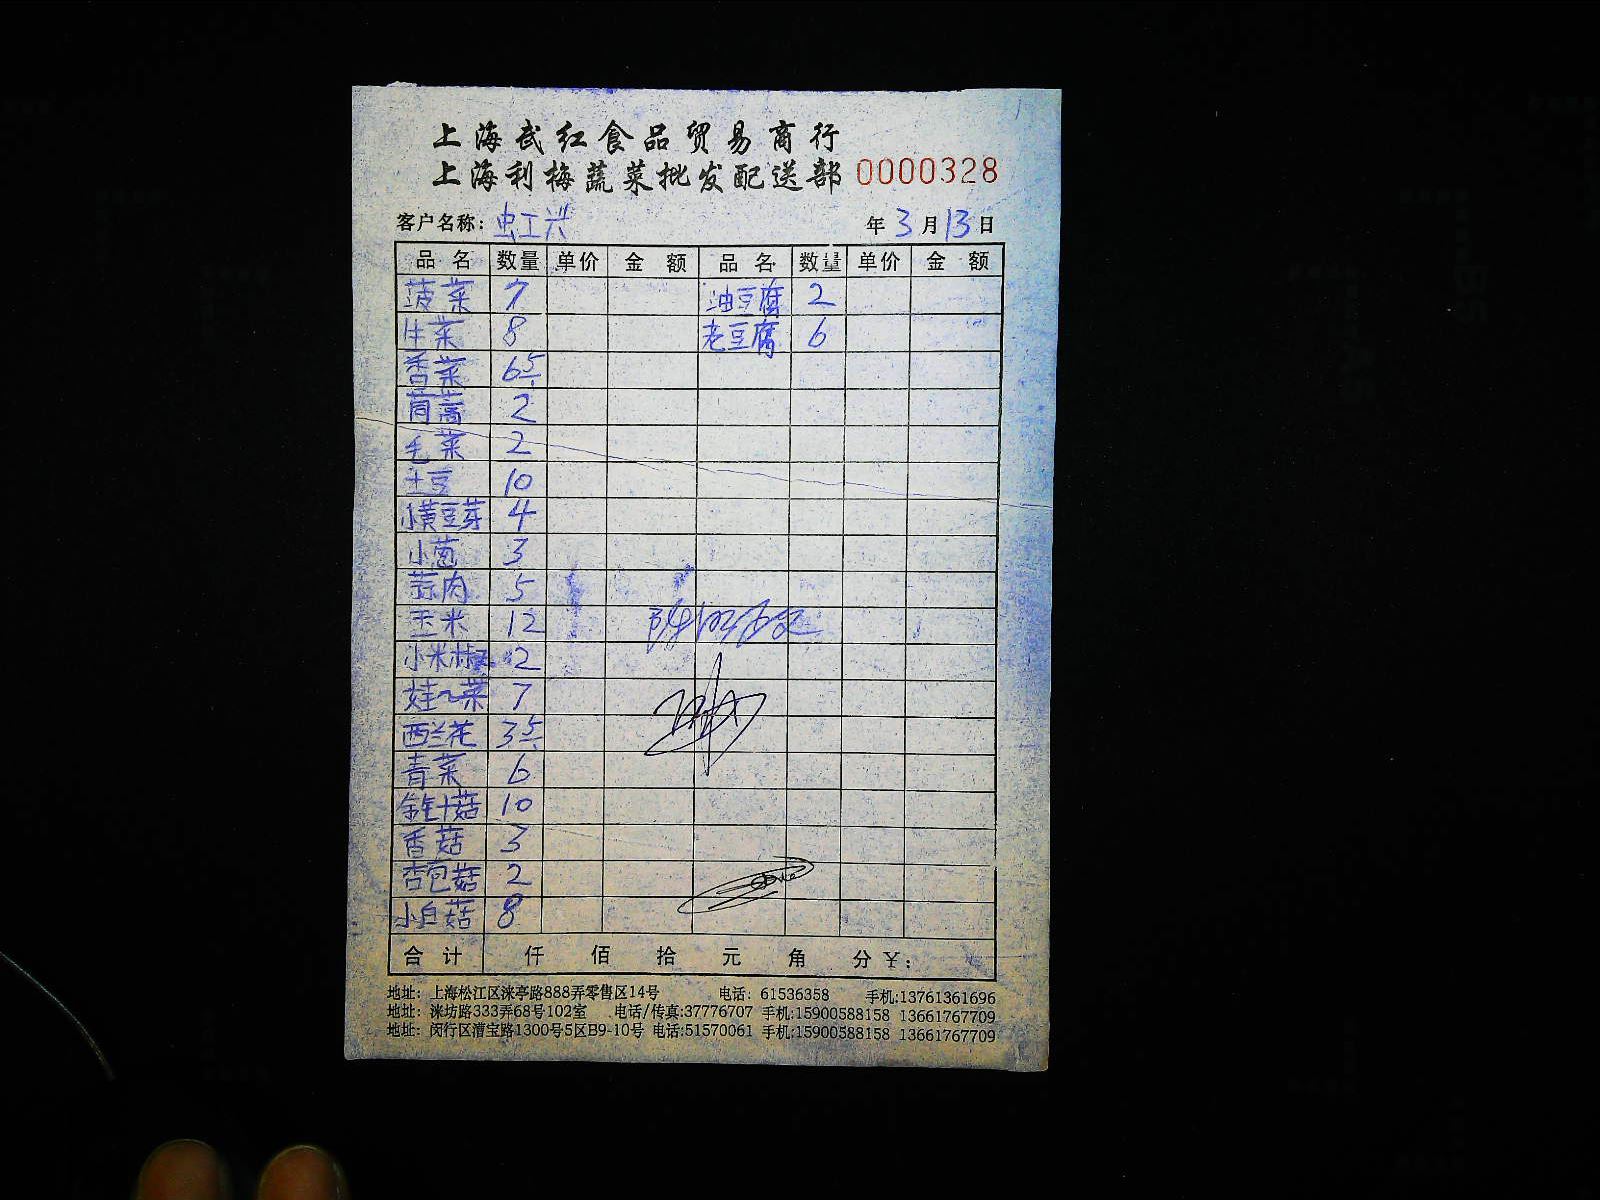 上海武红食品贸易商行
上海利梅蔬菜批发配送部 0000328
客户名称: 虹兴 年 3 月 13 日
品名 数量 单价 金额 品名 数量 单价 金额
菠菜 7 油豆腐 2
生菜 8 老豆腐 6
香菜 6.5
茼蒿 2
毛菜 2
土豆 10
小黄豆芽 4
小葱 3
蒜肉 5
玉米 12
小米椒 2
娃~菜 7
西兰花 3.5
青菜 6
金针菇 10
香菇 3
杏包菇 2
小白菇 8
合计 仟 佰 拾 元 角 分 ¥:
地址: 上海松江区涞亭路888弄零售区14号 电话: 61536358 手机:13761361696
地址: 涞坊路333弄68号102室 电话/传真:37776707 手机:15900588158 13661767709
地址: 闵行区漕宝路1300号5区B9-10号 电话:51570061 手机:15900588158 13661767709